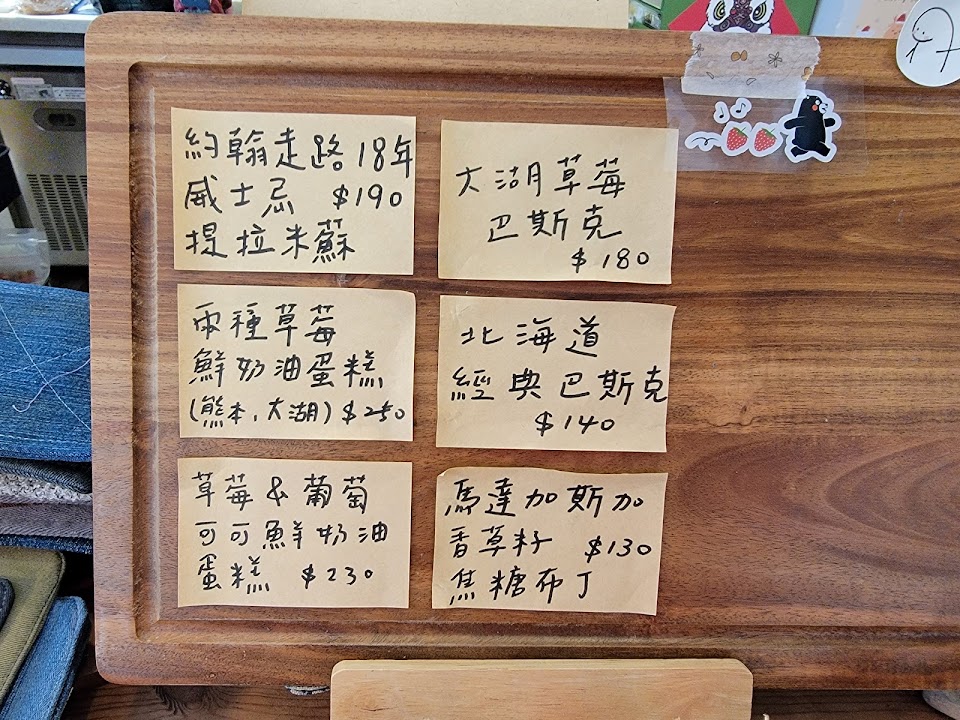 約翰走路18年
威士忌 $190
提拉米蘇
大湖草莓
巴斯克
$180
兩種草莓
鮮奶油蛋糕
(熊本、大湖) $250
北海道
經典巴斯克
$140
草莓&葡萄
可可鮮奶油
蛋糕 $230
馬達加斯加
香草籽 $130
焦糖布丁